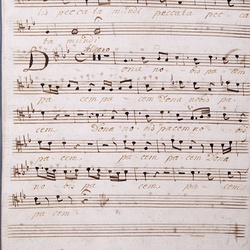 lis peccata mundi peccata pec-
ta mundi.
Allegro
Dona nobis pa cem
pa cem pa cem Dona nobis pa
cem. Dona nobis pacem no bis
cem, pa cem pa cem Dona
no bis pa cem, pa cem,
pa cem.